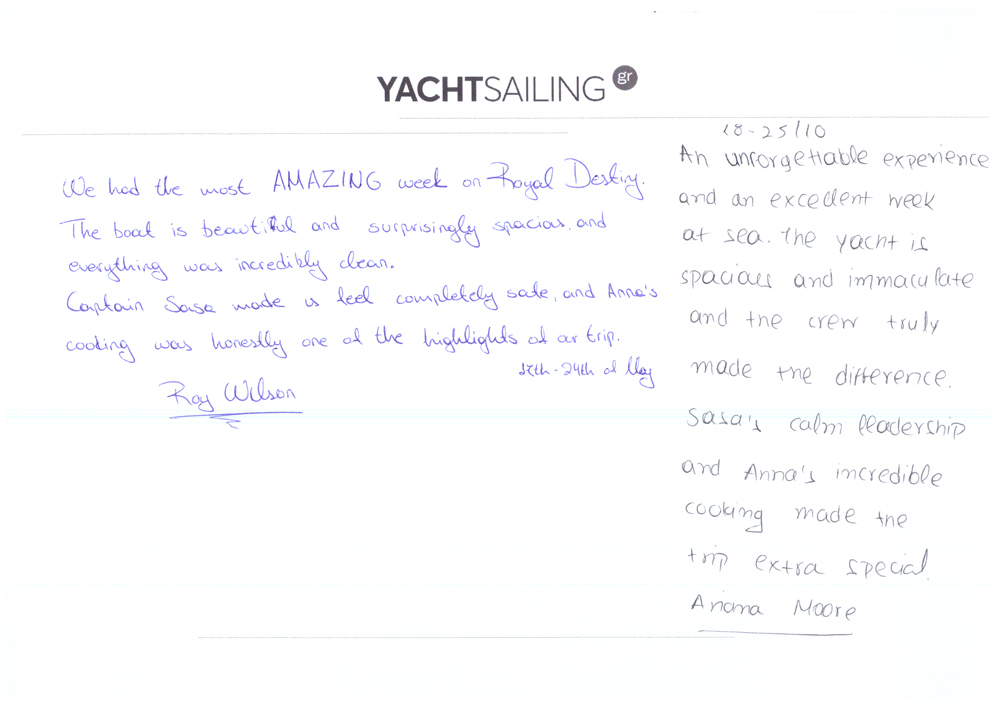 YACHTSAILING gr
We had the most AMAZING week on Royal Destiny.
The boat is beautiful and surprisingly spacious, and
everything was incredibly clean.
Captain Sasa made us feel completely safe, and Anna's
cooking was honestly one of the highlights of our trip.
17th-24th of May
Ray Wilson
18-25/10
An unforgettable experience
and an excellent week
at sea. The yacht is
spacious and immaculate
and the crew truly
made the difference.
Sasa's calm leadership
and Anna's incredible
cooking made the
trip extra special.
Ariana Moore